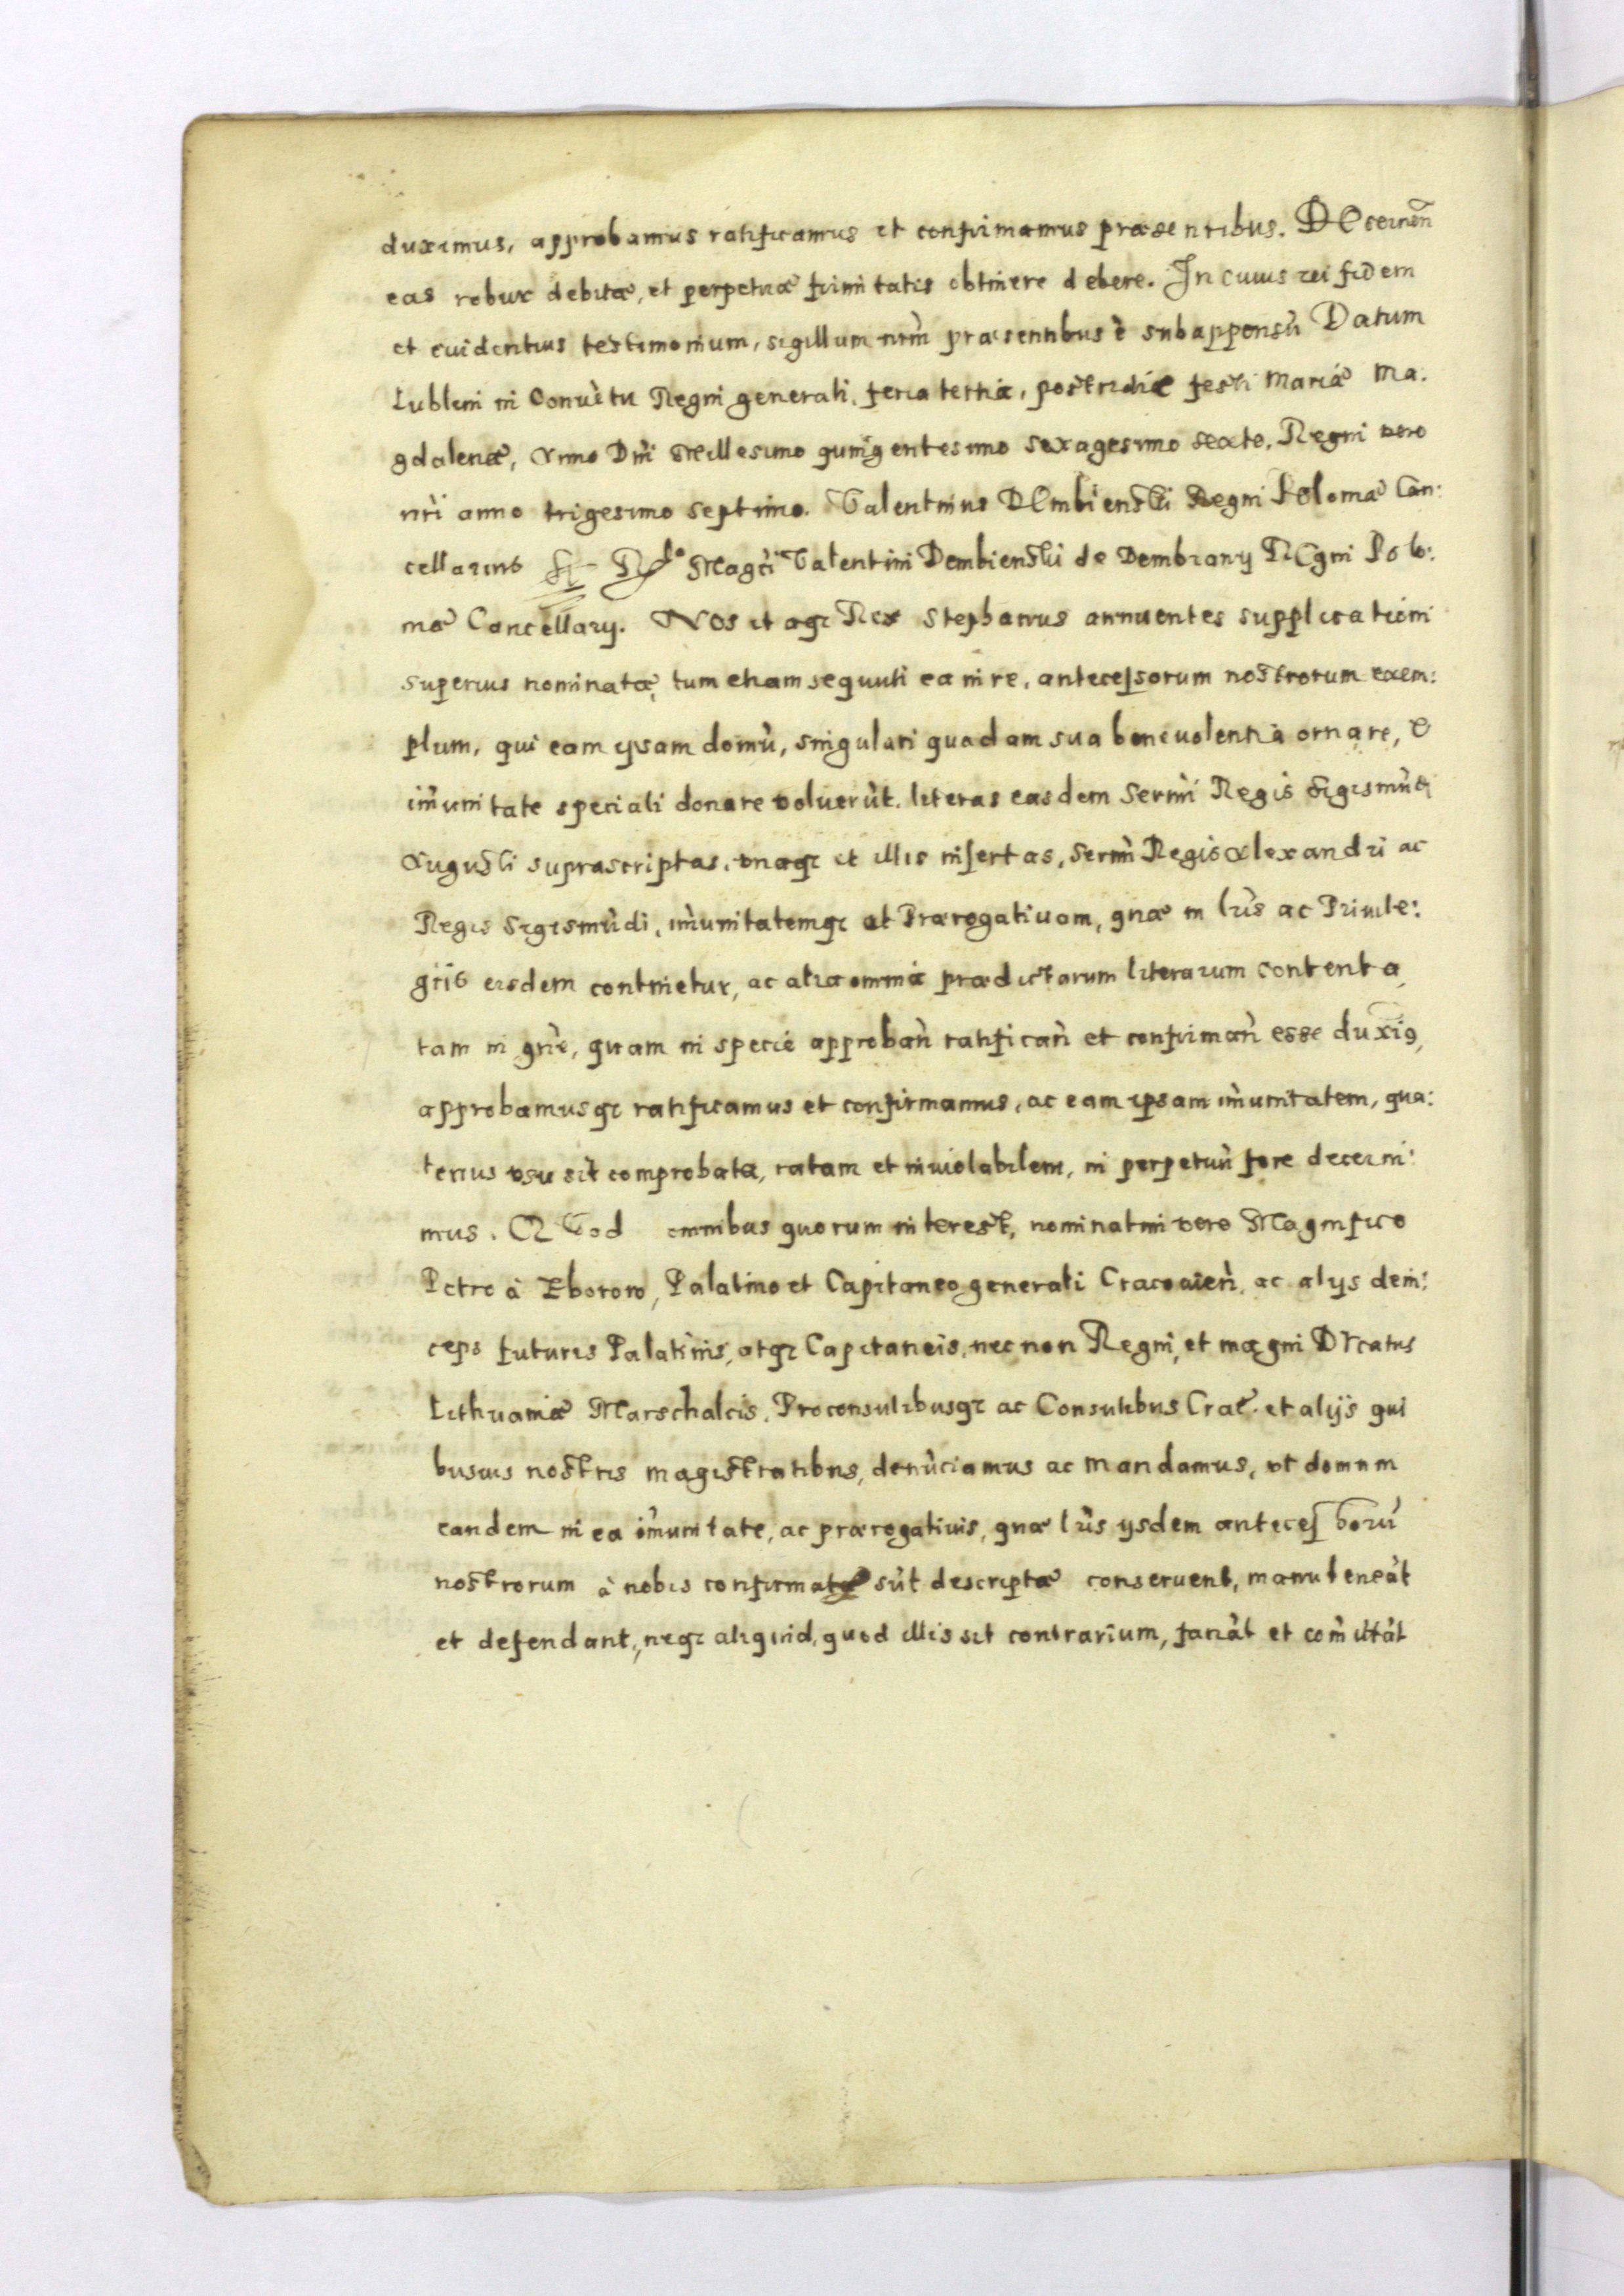 duximus, approbamus ratificamus et confirmamus præsentibus. DEcernen̄
eas robur debitæ, et perpetuæ firmitatis obtinere debere. In cuius rei fidem
et euidentius testimonium, sigillum nrm̀ præsentibus è subappensù Datum
Lublini in Conuètu Regni generali, feria tertia, postridie festi Mariæ Ma:
gdalenæ, Anno Dnì Millesimo quingentesimo sexagesimo sexto. Regni vero
nrì anno trigesimo septimo. Valentinus DEmbienski Regni Poloniæ Can:
cellarius Rᵈᵒ Magcì Valentini Dembienski de Dembiany REgni Polo:
niæ Cancellarij. NOs itaqꝫ Rex Stephanus annuentes supplicationi
superius nominatæ, tum etiam sequuti ea in re, antecessorum nostrorum exem:
plum, qui eam ipsam domù, singulari quadam sua beneuolentia ornare, &
im̀unitate speciali donare voluerùt. literas easdem Sermì Regis Sigismùdi
Augusti suprascriptas, vnaqꝫ et illis insertas, Sermì Regis Alexandri ac
Regis Sigismùdi, im̀unitatemqꝫ et Prærogatiuam, quæ in lrìs ac Priuile:
giis eisdem continetur, ac alia omnia prædictarum literarum contenta,
tam in gnr̀e, quam in specie approban̄ ratifican̄ et confirman̄ esse duxiꝰ,
approbamusqꝫ ratificamus et confirmamus, ac eam ipsam im̀unitatem, qua:
tenus vsu sit comprobata, ratam et inuiolabilem, in perpetuù fore decerni:
mus. QVod omnibus quorum interest, nominatim vero Magnifico
Petro à Zborow, Palatino et Capitaneo generali Cracouien̄, ac alijs dein:
ceps futuris Palatinis, atqꝫ Capitaneis, nec non Regni, et magni DVcatus
Lithuaniæ Marschalcis, Proconsulibusqꝫ ac Consulibus Craē. et alijs qui
busuis nostris magistratibus, denùciamus ac mandamus, vt domum
eandem in ea im̀unitate, ac prærogatiuis, quæ lrìs ijsdem antecessorù
nostrorum à nobis confirmatæ sùt descriptæ conseruent, manuteneàt
et defendant, neqꝫ aliquid, quod illis sit contrarium, faciàt et com̀itàt